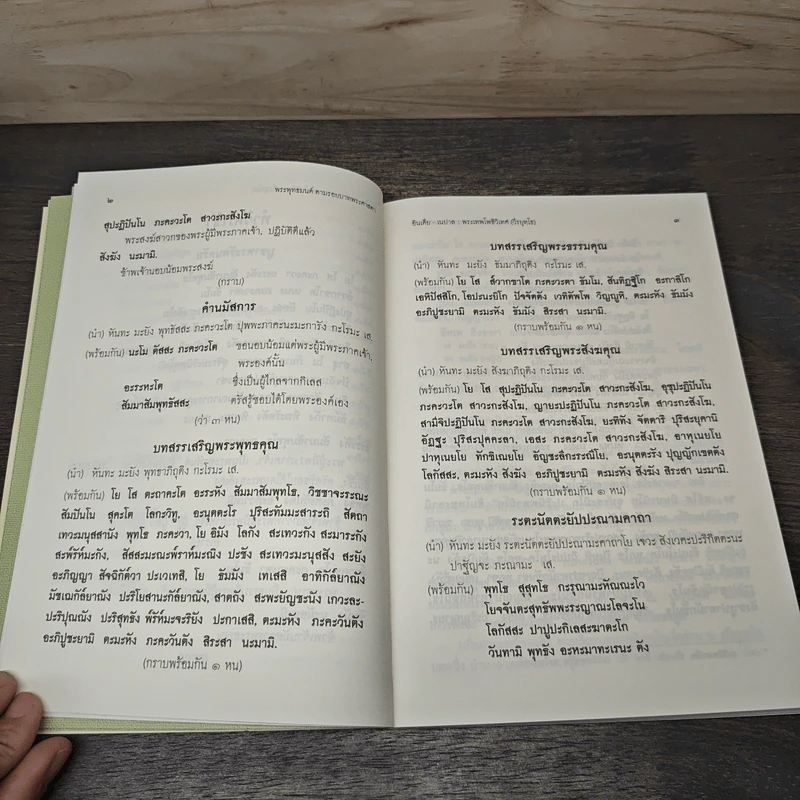 ๒
พระพุทธมนต์ ตามรอยบาทพระศาสดา
สุปะฏิปันโน ภะคะวะโต สาวะกะสังโฆ
พระสงฆ์สาวกของพระผู้มีพระภาคเจ้า, ปฏิบัติดีแล้ว
สังฆัง นะมามิ.
ข้าพเจ้านอบน้อมพระสงฆ์
(กราบ)
คำนมัสการ
(นำ) หันทะ มะยัง พุทธัสสะ ภะคะวะโต ปุพพะภาคะนะมะการัง กะโรมะ เส.
(พร้อมกัน) นะโม ตัสสะ ภะคะวะโต ขอนอบน้อมแด่พระผู้มีพระภาคเจ้า,
พระองค์นั้น
อะระหะโต ซึ่งเป็นผู้ไกลจากกิเลส
สัมมาสัมพุทธัสสะ ตรัสรู้ชอบได้โดยพระองค์เอง
(ว่า ๓ หน)
บทสรรเสริญพระพุทธคุณ
(นำ) หันทะ มะยัง พุทธาภิถุติง กะโรมะ เส.
(พร้อมกัน) โย โส ตะถาคะโต อะระหัง สัมมาสัมพุทโธ, วิชชาจะระณะ
สัมปันโน สุคะโต โลกะวิทู, อะนุตตะโร ปุริสะทัมมะสาระถิ สัตถา
เทวะมะนุสสานัง พุทโธ ภะคะวา, โย อิมัง โลกัง สะเทวะกัง สะมาระกัง
สะพ๎รัห๎มะกัง, สัสสะมะณะพ๎ราห๎มะณิง ปะชัง สะเทวะมะนุสสัง สะยัง
อะภิญญา สัจฉิกัต๎วา ปะเวเทสิ, โย ธัมมัง เทเสสิ อาทิกัล๎ยาณัง
มัชเฌกัล๎ยาณัง ปะริโยสานะกัล๎ยาณัง, สาตถัง สะพะยัญชะนัง เกวะละ-
ปะริปุณณัง ปะริสุทธัง พ๎รัห๎มะจะริยัง ปะกาเสสิ, ตะมะหัง ภะคะวันตัง
อะภิปูชะยามิ ตะมะหัง ภะคะวันตัง สิระสา นะมามิ.
(กราบพร้อมกัน ๑ หน)
อินเดีย - เนปาล : พระเทพโพธิวิเทศ (วีรยุทโธ)
๓
บทสรรเสริญพระธรรมคุณ
(นำ) หันทะ มะยัง ธัมมาภิถุติง กะโรมะ เส.
(พร้อมกัน) โย โส ส๎วากขาโต ภะคะวะตา ธัมโม, สันทิฏฐิโก อะกาลิโก
เอหิปัสสิโก, โอปะนะยิโก ปัจจัตตัง เวทิตัพโพ วิญญูหิ, ตะมะหัง ธัมมัง
อะภิปูชะยามิ ตะมะหัง ธัมมัง สิระสา นะมามิ.
(กราบพร้อมกัน ๑ หน)
บทสรรเสริญพระสังฆคุณ
(นำ) หันทะ มะยัง สังฆาภิถุติง กะโรมะ เส.
(พร้อมกัน) โย โส สุปะฏิปันโน ภะคะวะโต สาวะกะสังโฆ, อุชุปะฏิปันโน
ภะคะวะโต สาวะกะสังโฆ, ญายะปะฏิปันโน ภะคะวะโต สาวะกะสังโฆ,
สามีจิปะฏิปันโน ภะคะวะโต สาวะกะสังโฆ, ยะทิทัง จัตตาริ ปุริสะยุคานิ
อัฏฐะ ปุริสะปุคคะลา, เอสะ ภะคะวะโต สาวะกะสังโฆ, อาหุเนยโย
ปาหุเนยโย ทักขิเณยโย อัญชะลิกะระณีโย, อะนุตตะรัง ปุญญักเขตตัง
โลกัสสะ, ตะมะหัง สังฆัง อะภิปูชะยามิ ตะมะหัง สังฆัง สิระสา นะมามิ.
(กราบพร้อมกัน ๑ หน)
ระตะนัตตะยัปปะณามะคาถา
(นำ) หันทะ มะยัง ระตะนัตตะยัปปะณามะคาถาโย เจวะ สังเวคะปะริกิตตะนะ
ปาฐัญจะ ภะณามะ เส.
(พร้อมกัน) พุทโธ สุสุทโธ กะรุณามะหัณณะโว
โยจจันตะสุทธัพพะระญาณะโลจะโน
โลกัสสะ ปาปูปะกิเลสะฆาตะโก
วันทามิ พุทธัง อะหะมาทะเรนะ ตัง